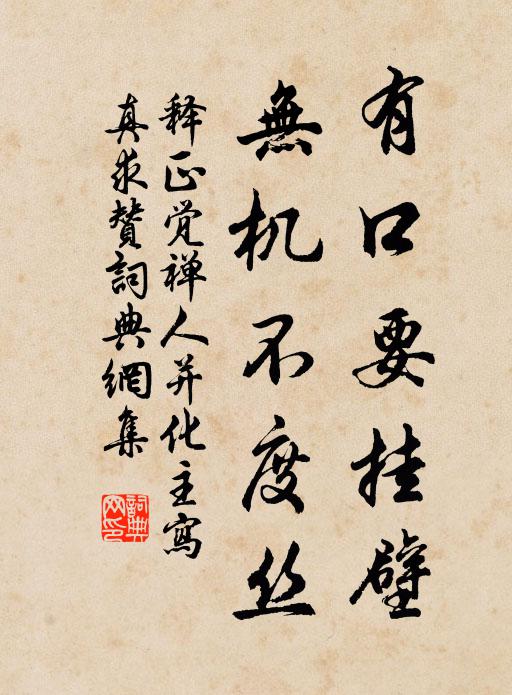 有口要挂壁
無机不度丝
释正觉禅人并化主寫
真求赞詞典網集
詞典
网印